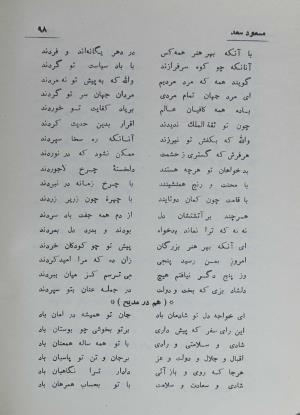 مسعود سعد
۹۸
با آنکه بهر هنر همه کس در دهر یگانه‌اند و فردند
آنانکه چو کوه سرفرازند با باد سیاست تو گردند
گویند همه که مرد مردیم والله که به پیش تو نه مردند
ای مرد جهان تمام مردی مردان جهان سر تو گردند
باده همه کافیان عالم بریاد کفایت تو خوردند
چون تو ثقة‌الملک ندیدند اقرار بدین حدیث کردند
والله که بکفش تو نیرزند آنانکه ره سخا سپردند
هرفرش که گستری ز حشمت ممکن نشود که در نوردند
بدخواهان تو هرچه هستند دلخستۀ چرخ لاجوردند
با محنت و رنج همنشینند با چرخ زمانه در نبردند
با قامت چون کمان دوتایند با چهرۀ چون زریر زردند
هرچند بر آتشنشان دل از دم همه جفت باد سردند
نه نه که ترا نماند بدخواه بودند و بدرد دل بمردند
ای آنکه بهر هنر بزرگان پیش تو چو کودکان خردند
امروز بمن رسید پنجی زان ده که مرا امید کردند
وز پنج دگر نیافتم هیچ می ترسم کز میان ببردند
دلشاد بزی که بخت و دولت در جمله عنان بتو سپردند
* ( هم در مدیح ) *
ای خواجه دل تو شادمان باد جان تو همیشه در امان باد
این رای سفر که پیش داری برتو بخوشی چو بوستان باد
شادی و سلامتی و رادی با تو همه ساله همعنان باد
اقبال و جلال و دولت و عز برجان و تن تو پاسبان باد
هرجا که روی و باز آئی دادار ترا نگاهبان باد
شادی و سعادت و سلامت با تو بحساب همرهان باد